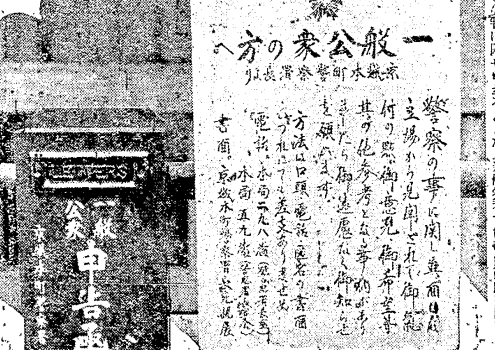 一般公衆の方へ
京城本町警察署長より
警察の事に関し
立場から見聞きされて御氣
付の點、御意見、御希望等
其の他参考となる事柄があり
ましたら御遠慮なく御知らせ
を願ひます。
方法は口頭、電話、匿名の書面
いづれにても差支ありません
電話。本局二九八
本局五九
書面。京城本町警察署長親展
LETTERS
一般
公衆
申告函
京城本町警察署